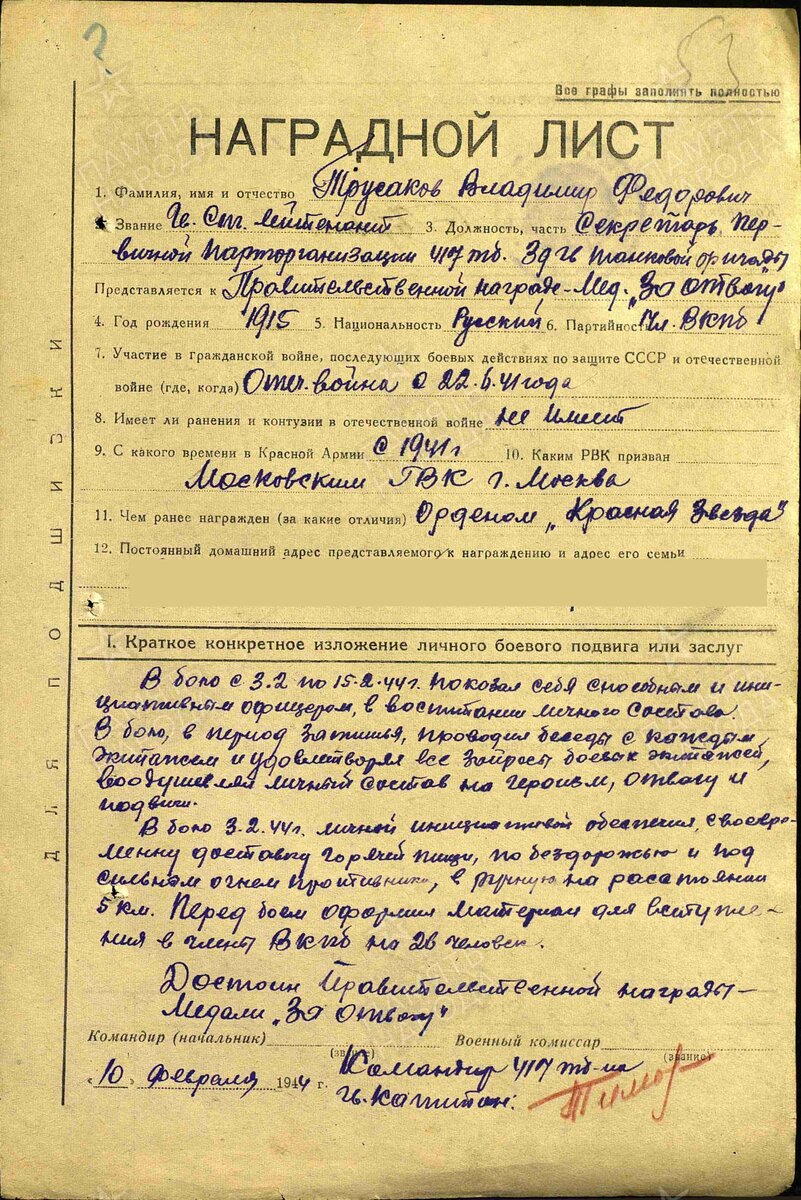 2
53
Все графы заполнять полностью
НАГРАДНОЙ ЛИСТ
1. Фамилия, имя и отчество Трусаков Владимир Федорович
2. Звание Гв. Ст. лейтенант 3. Должность, часть Секретарь пер-
вичной парторганизации 417 тб. 39 гв танковой бригады
Представляется к Правительственной награде - Мед. "За отвагу"
4. Год рождения 1915 5. Национальность Русский 6. Партийность Чл. ВКПб
7. Участие в гражданской войне, последующих боевых действиях по защите СССР и отечественной
войне (где, когда) Отеч. война с 22.6.41 года
8. Имеет ли ранения и контузии в отечественной войне не имеет
9. С какого времени в Красной Армии с 1941 г 10. Каким РВК призван
Московским ГВК г. Москва
11. Чем ранее награжден (за какие отличия) Орденом "Красная Звезда"
12. Постоянный домашний адрес представляемого к награждению и адрес его семьи
ДЛЯ ПОДШИВКИ
I. Краткое конкретное изложение личного боевого подвига или заслуг
В бою с 3.2 по 15.2.44 г. показал себя способным и ини-
циативным офицером, в воспитании личного состава.
В бою, в период затишья, проводил беседы с каждым
экипажем и удовлетворял все запросы боевых экипажей,
воодушевлял личный состав на героизм, отвагу и
подвиги.
В бою 3.2.44 г. личной инициативой обеспечил, своевре-
менну доставку горячей пищи, по бездорожью и под
сильным огнем противника, в ручную на расстоянии
5 км. Перед боем оформил материал для вступле-
ния в члены ВКПб на 26 человек.
Достоин Правительственной награды -
Медали "За отвагу"
Командир (начальник) Военный комиссар
(звание) (звание)
Командир 417 тб-на
"10" февраля 1944 г. гв. капитан: